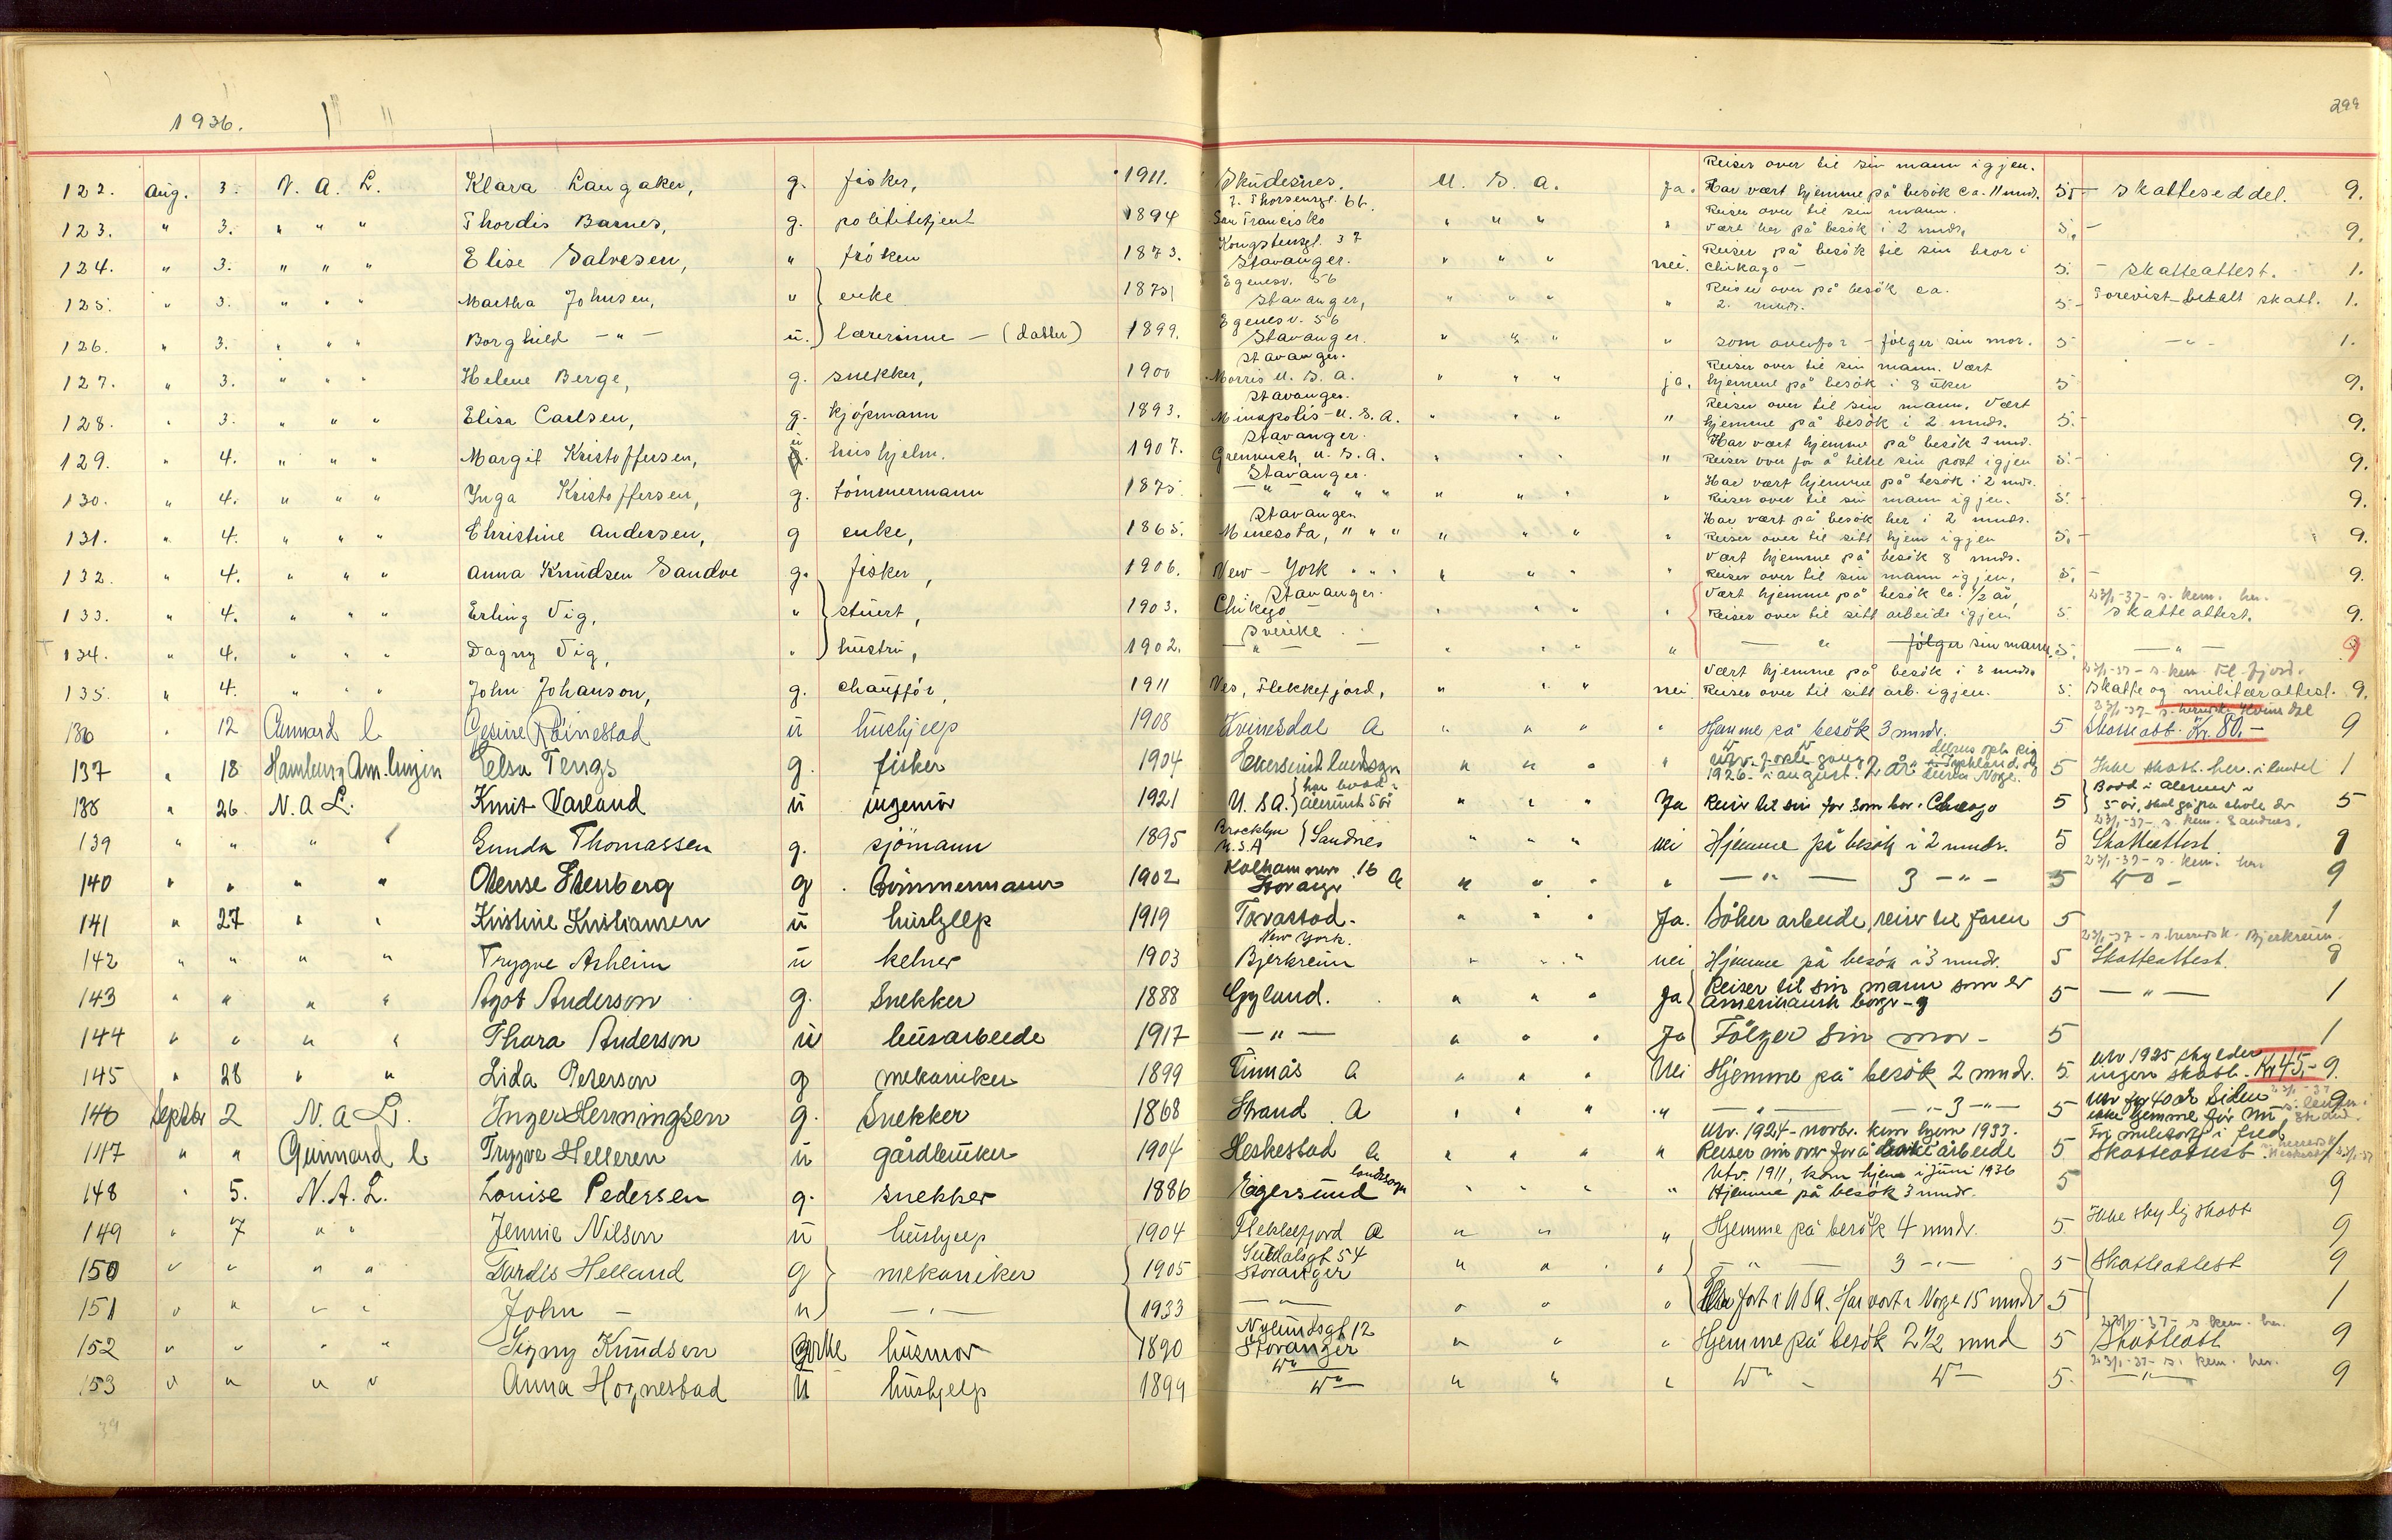 1936.
299
122. Aug. 3. N. A. L. Klara Langaker, g. fisker, 1911. Skudesnes. U. S. A. Ja. Reiser over til sin mann igjen. Har vært hjemme på besök ca. 11 mnd. 5,- skatteseddel. 9.
123. " 3. " " " Thordis Barnes, g. polititetjent 1894 San Francisko " " " " Reiser over til sin mann. Vært her på besök i 2 mnds. 5,- 9.
124. " 3. " " " Elise Salvesen, " fröken 1873. Kongstensgt. 37 Stavanger. " " " nei. Reiser på besök til sin bror i Chikago - 5. - skatteattest. 1.
125. " 3. " " " Martha Johnsen, " enke 1875 Egenesv. 56 Stavanger, " " " " Reiser over på besök ca. 2. mnds. 5 - Forevist betalt skatt. 1.
126. " 3. " " " Borghild - " - u. lærerinne - (datter) 1899. Egenesv. 56 Stavanger. " " " " som ovenfor - fölger sin mor. 5 - " - 1.
127. " 3. " " " Helene Berge, g. snekker, 1900 Stavanger. Morris U. S. A. " " " ja. Reiser over til sin mann. Vært hjemme på besök i 8 uker 5 9.
128. " 3. " " " Elisa Carlsen, g. kjöpmann 1893. Stavanger. Minapolis - U. S. A. " " " " Reiser over til sin mann. Vært hjemme på besök i 2 mnds. 5. 9.
129. " 4. " " " Margit Kristoffersen, hushjelm. 1907. Stavanger. U. S. A. " " " " Har vært hjemme på besök 3 mnd. Reiser over for å tiltre sin post igjen 5. - 9.
130. " 4. " " " Inga Kristoffersen, g. tömmermann 1875 Stavanger. " " " " " " " " Har vært hjemme på besök i 2 mnds. Reiser over til sin mann igjen. 5. - 9.
131. " 4. " " " Christine Andersen, g enke, 1865. Stavanger. Minesota, " " " " " " " Har vært på besök her i 2 mnds. Reiser over til sitt hjem igjen 5. - 9.
132. " 4. " " " Anna Knudsen Sandve g. fisker, 1906. New - York " " " " " " " Vært hjemme på besök 8 mnds. Reiser over til sin mann igjen. 5. - 9.
133. " 4. " " " Erling Vig, " stuert, 1903. Stavanger. Chikego - " " " " Vært hjemme på besök ca. 1/2 år Reiser over til sitt arbeide igjen 5. 23/1-37 - s. kem. her. skatteattest. 9.
134. " 4. " " " Dagny Vig, " hustru, 1902. Sverike - " - " " " " - " fölger sin mann. 5. - " - 9
135. " 4. " " " John Johanson, g. chaufför, 1911 Nes, Flekkefjord, " " " nei Vært hjemme på besök i 3 mnds. Reiser over til sitt arb. igjen. 5. 23/1-37 - s. kem Fl. fjord. Skatte og militærattest. 9.
136 " 12 Cunnard l. Gesine Rainestad u hushjelp 1908 Kvinesdal A " " " " Hjemme på besök 3 mndr. 5 Skatteatt. Kr. 80,- 9
137 " 18 Hamburg Am. linjen Elsa Tengs g. fisker 1904 Ekersund landsogn " " " " 1926 - i august. 2 år 5 Ikke skatt. her i landet 1
138 " 26 N. A L. Knut Varland u ingeniör 1921 U. S A. har bodd i Ålesund 5 år " " " Ja Reiser til sin far som bor i Chicago 5 Bodd i Ålesund i 5 år, skal gå på skole der 5
139 " " " " Gunda Thomassen g. sjömann 1895 Brooklyn U. S. A Sandnes " " " nei Hjemme på besök i 2 mndr. 5 23/1-37 - s. kem. Sandnes. Skatteattest. 9
140 " " " " Stenberg g. tömmermann 1902 16 Stavanger A " " " " - " - 3 - " - 5 23/1-37 - s. kem. her 9
141 " 27 " " Kristine Kristiansen u hushjelp 1919 Tarastad - New York. " " " Ja. Söker arbeide, reiser til faren 5 1
142 " " " " Trygve Asheim u kelner 1903 Bjerkreim " " " nei Hjemme på besök i 3 mndr. 5 Bjerkreim. Skatteattest. 9
143 " " " " Agot Anderson g. Snekker 1888 Gyland. " " " Ja Reiser til sin mann som er Amerikansk borger 5 - " - 1
144 " " " " Thora Anderson u husarbeide 1917 - " - " " " Ja Fölger sin mor - 5 1
145 " 28 " " Lida Peterson g mekaniker 1899 A " " " Nei Hjemme på besök 2 mndr. 5. Utv 1925 skylder ingen skatt. Kr 45,- 9.
146 Septbr 2 N. A L. Inger Henningsen g. Snekker 1868 Strand A " " " " - " - 3 - " - 5 Utv for 40 år siden ikke hjemme för nu 9
147 " " Cunnard l Trygve Helleren u gårdbruker 1904 Heskestad A " " " " Utv. 1924 - novbr. kom hjem 1933. Reiser nu over for å söke arbeide 5. Skatteattest 1
148 " 5. N. A. L. Louise Pedersen g. snekker 1886 Egersund landsogn " " " " Utv. 1911, kom hjem i juni 1936 Hjemme på besök 3 mndr. 5 9
149 " 7 " " Jennie Nilson u hushjelp 1904 Flekkefjord A " " " Hjemme på besök 4 mndr. 5. Ikke skyldig skatt 9
150 " " " " Tordis Helland g mekaniker 1905 54 Stavanger " " " - " - 3 - " - 5 Skatteattest 9
151 " " " " John - u - " - 1933 - " - " " " Er föt i U S A. Har vært i Norge 15 mndr 5 1
152 " " " " Signy Knudsen husmor 1890 Nylundsgt 12 Stavanger " " " Hjemme på besök 2 1/2 mnd 5 23/1-37 - s kem. her. Skatteatt 9
153 " " " " Anna Hognestad u hushjelp 1899 " " " 5. 23/1-37 - s. kem. her. - " - 9